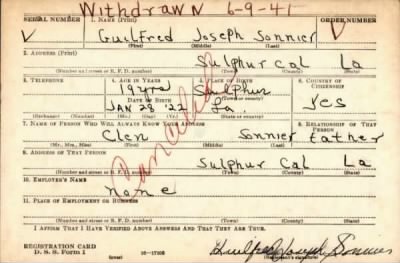 Withdrawn 6-9-41
SERIAL NUMBER 1. NAME (Print) ORDER NUMBER
V Guilfred Joseph Sonnier V
(First) (Middle) (Last)
2. ADDRESS (Print)
Sulphur Cal La
(Number and street or R. F. D. number) (Town) (County) (State)
3. TELEPHONE 4. AGE IN YEARS 5. PLACE OF BIRTH 6. COUNTRY OF CITIZENSHIP
19 yrs Sulphur
DATE OF BIRTH (Town or county)
JAN 29 '22 La. Yes
(Exchange) (Number) (Mo.) (Day) (Yr.) (State or country)
7. NAME OF PERSON WHO WILL ALWAYS KNOW YOUR ADDRESS 8. RELATIONSHIP OF THAT PERSON
Clen Sonnier father
(Mr., Mrs., Miss) (First) (Middle) (Last)
9. ADDRESS OF THAT PERSON
Sulphur Cal La
(Number and street or R. F. D. number) (Town) (County) (State)
10. EMPLOYER'S NAME
none
11. PLACE OF EMPLOYMENT OR BUSINESS
(Number and street or R. F. D. number) (Town) (County) (State)
I AFFIRM THAT I HAVE VERIFIED ABOVE ANSWERS AND THAT THEY ARE TRUE.
REGISTRATION CARD
D. S. S. Form 1 (over) Guilfred Joseph Sonnier
(Registrant's signature)